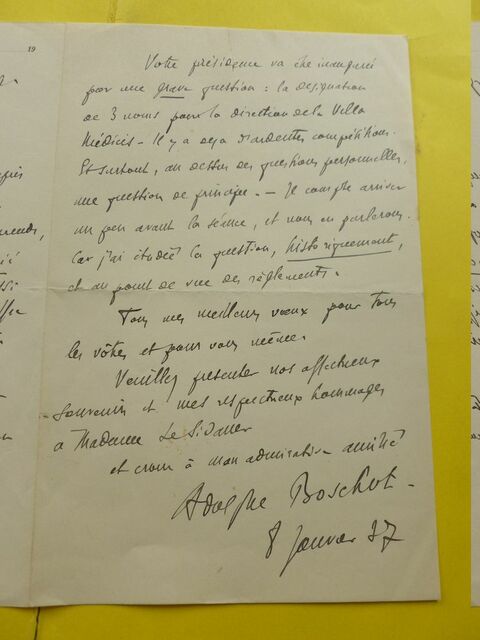 19
Votre présidence va être inauguré
par une grave question : la désignation
de 3 noms pour la direction de la Villa
Médicis — Il y a déjà d'ardentes compétitions.
Et surtout, au dessus des questions personnelles,
une question de principe. — Je compte arriver
un peu avant la séance, et nous en parlerons.
Car j'ai étudié la question, historiquement,
et au point de vue des règlements.
Tous mes meilleurs vœux pour tous
les vôtres et pour vous même.
Veuillez présenter nos affectueux
souvenirs et mes respectueux hommages
à Madame Le Sidaner
et croire à mon admirative amitié
Adolphe Boschot —
8 janvier 37